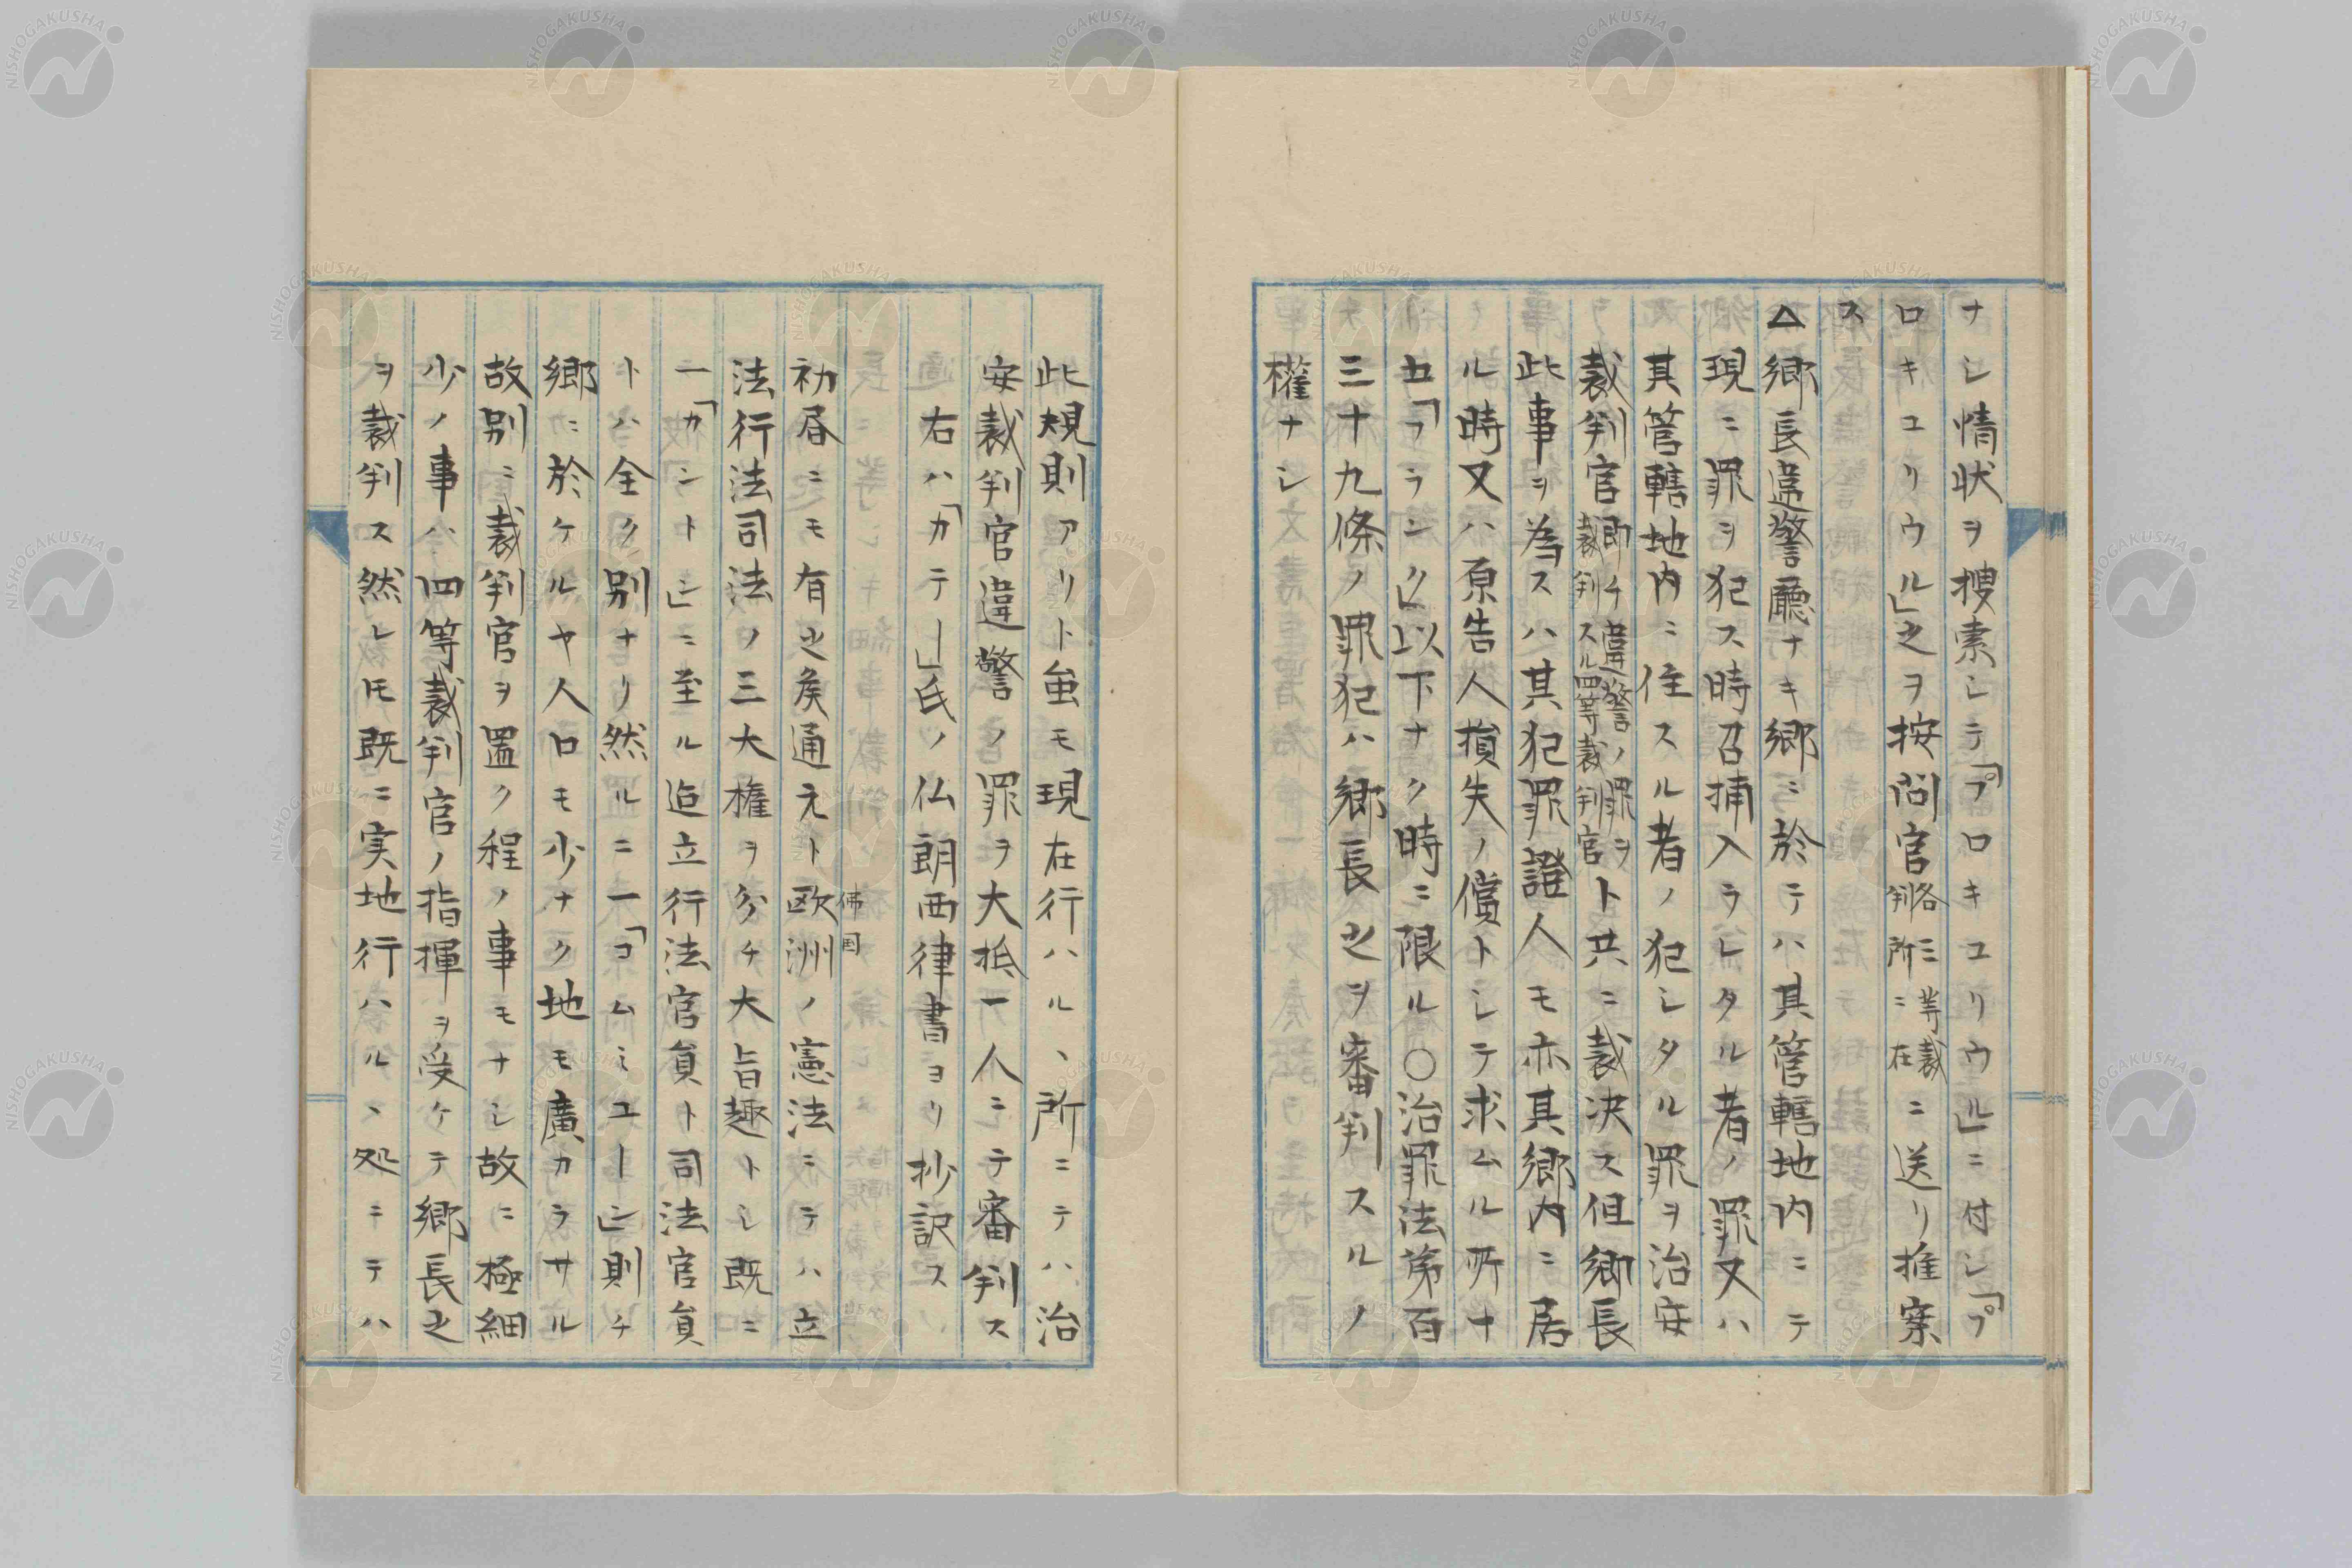 ナシ情状ヲ捜索シテ「プロキユリウル」ニ付シ「プ
ロキユリウル」之ヲ按問官各三等裁判所ニ在ニ送リ推案
ス
△郷長違警廳ナキ郷ニ於テハ其管轄地内ニテ
現ニ罪ヲ犯ス時召捕入ラレタル者ノ罪又ハ
其管轄地内ニ住スル者ノ犯シタル罪ヲ治安
裁判官即チ違警ノ罪ヲ裁判スル四等裁判官ト共ニ裁決ス但郷長
此事ヲ為スハ其犯罪證人モ亦其郷内ニ居
ル時又ハ原告人損失ノ償トシテ求ムル所十
五「フランク」以下ナク時ニ限ル○治罪法第百
三十九條ノ罪犯ハ郷長之ヲ審判スルノ
權ナシ
此規則アリト虽モ現在行ハル、所ニテハ治
安裁判官違警ノ罪ヲ大抵一人ニテ審判ス
右ハ「カテー」氏ノ仏朗西律書ヨリ抄訳ス
佛国
初居ニモ有之矦通元ト欧洲ノ憲法ニテハ立
法行法司法ノ三大権ヲ分チ大旨趣トシ既ニ
一「カントン」ニ至ル迄立行法官員ト司法官員
トハ全ク別ナリ然ルニ一「コムミユーン」則チ
郷ニ於ケルヤ人口モ少ナク地モ廣カラサル
故別ニ裁判官ヲ置ク程ノ事モナシ故ニ極細
少ノ事ハ四等裁判官ノ指揮ヲ受ケテ郷長之
ヲ裁判ス然レ𪜈既ニ実地行ハル、処ニテハ
NISHOGAKUSHA